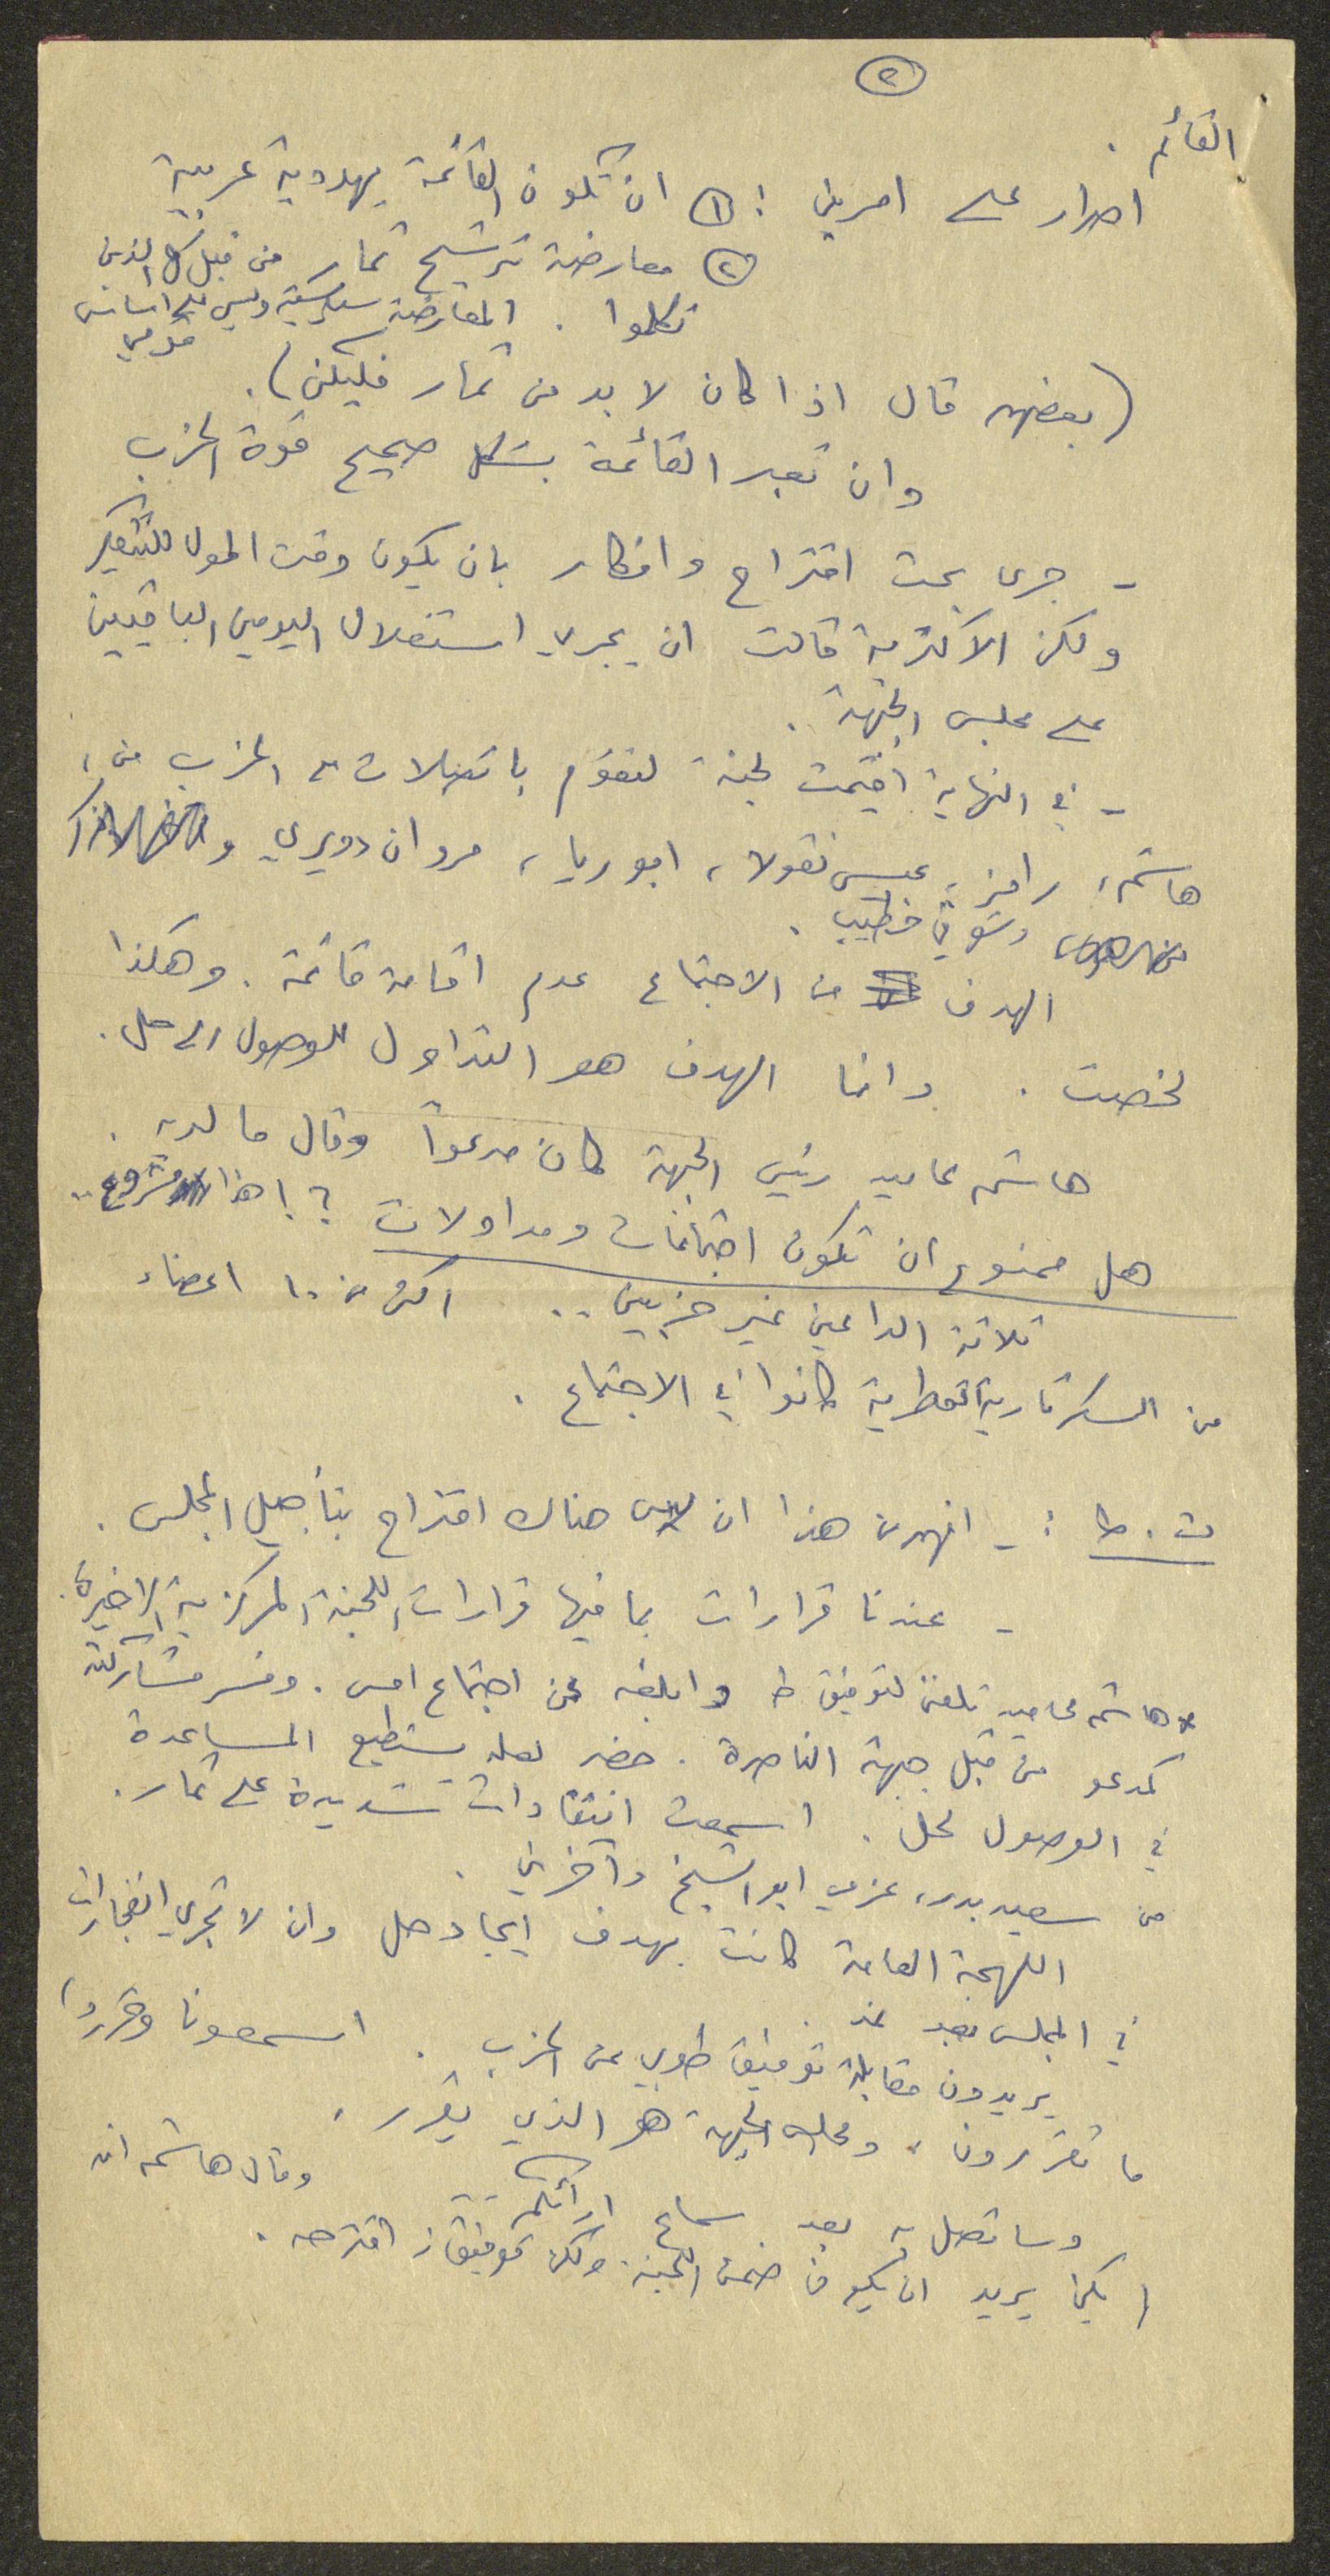 ٢
القائم .
اصرار على امرين : ① ان تكون القائمة يهودية عربية
② معارضة ترشيح تمار من قبل كل الذين
تكلموا . المعارضة سياسية وليس على اساس
قومي
(بعضهم قال اذا كان لا بد من تمار فليكن) .
وان تعبر القائمة بشكل صحيح قوة الحزب
- جرى بحث اقتراح وافكار بان يكون وقت اطول للتفكير
ولكن الاكثرية قالت ان يجري استغلال اليومين الباقيين
على مجلس الجبهة .
- في النهاية اقيمت لجنة لتقوم باتصالات مع الحزب من ،
هاشم ، رامز ، عيسى نقولا ، ابو ريا ، مروان دويري و
وشوقي خطيب .
الهدف من الاجتماع عدم اقامة قائمة . وهكذا
لخصت . وانما الهدف هو التداول للوصول الى حل .
هاشم محاميد رئيس الجبهة كان مدعواً وقال ما لديه .
هل ممنوع ان تكون اجتماعات ومداولات ؟ ! هذا مشروع ..
ثلاثة الداعين غير حزبيين .. اكثر من ١٠ اعضاء
من السكرتارية القطرية كانوا في الاجتماع .
ت . ط : - افهم من هذا ان ليس هناك اقتراح بتأجيل المجلس .
- عندنا قرارات بما فيها قرارات اللجنة المركزية الاخيرة .
هاشم محاميد تلفن لتوفيق ط وابلغه عن اجتماع امس . وفسر مشاركته
كمدعو من قبل جبهة الناصرة . حضر لعله يستطيع المساعدة
في الوصول لحل . اسمعت انتقادات شديدة على تمار .
من سعيد بدر ، عزمي ابو الشيخ وآخرين .
اللهجة العامة كانت بهدف ايجاد حل وان لا تجري انفجارات
في المجلس بعد غد .
يريدون مقابلة توفيق طوبي عن الحزب . اسمعونا وقرروا
ما تقررون ، ومجلس الجبهة هو الذي يقرر ،
وساتصل به بعد سماع ارائكم .. وقال هاشم انه
لم يكن يريد ان يكون ضمن اللجنة . ولكن توفيق ز اقترحه .